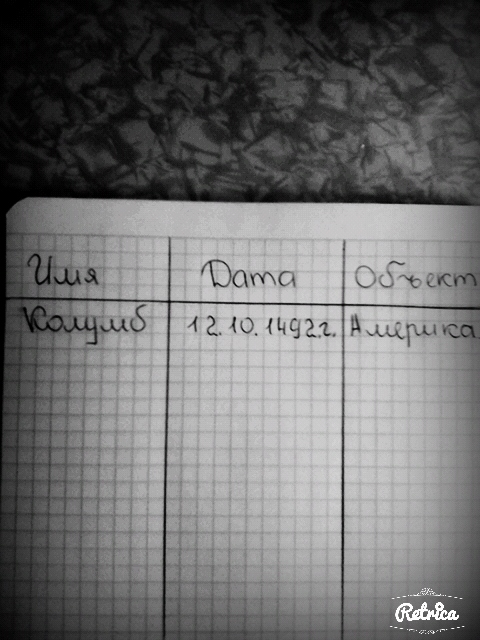 Имя Дата Объект
Колумб 12.10.1492г. Америка
Retrica